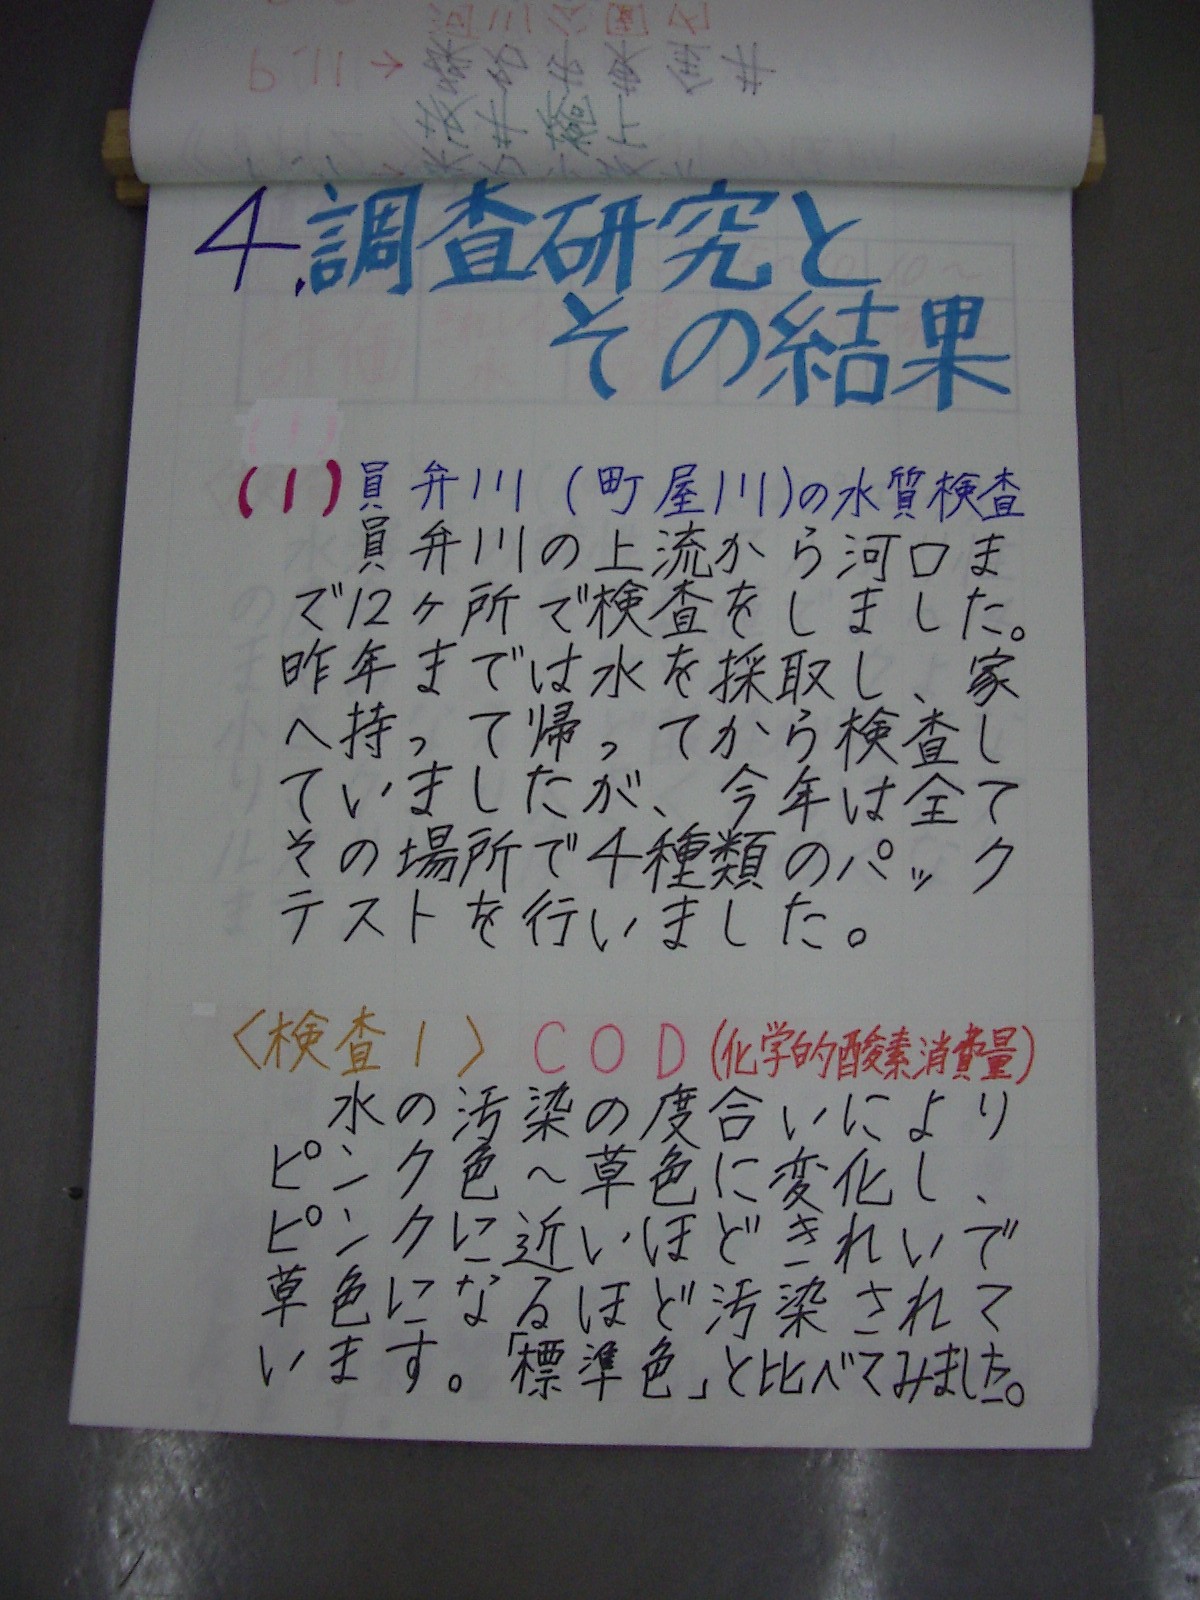 4.調査研究と
その結果
(1)員弁川(町屋川)の水質検査
員弁川の上流から河口ま
で12ヶ所で検査をしました。
昨年までは水を採取し、家
へ持って帰ってから検査し
ていましたが、今年は全て
その場所で4種類のパック
テストを行いました。
〈検査1〉COD(化学的酸素消費量)
水の汚染の度合いにより
ピンク色〜草色に変化し、
ピンクに近いほどきれいで
草色になるほど汚染されて
います。「標準色」と比べてみました。